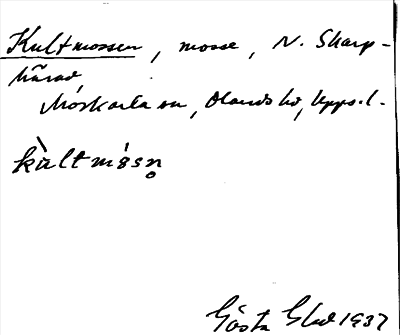 Kultmossen, mosse, N. Skarp-
Mörkarla sn, Olands hd, Upps.l.
kùltmósn̥
Gösta 1937